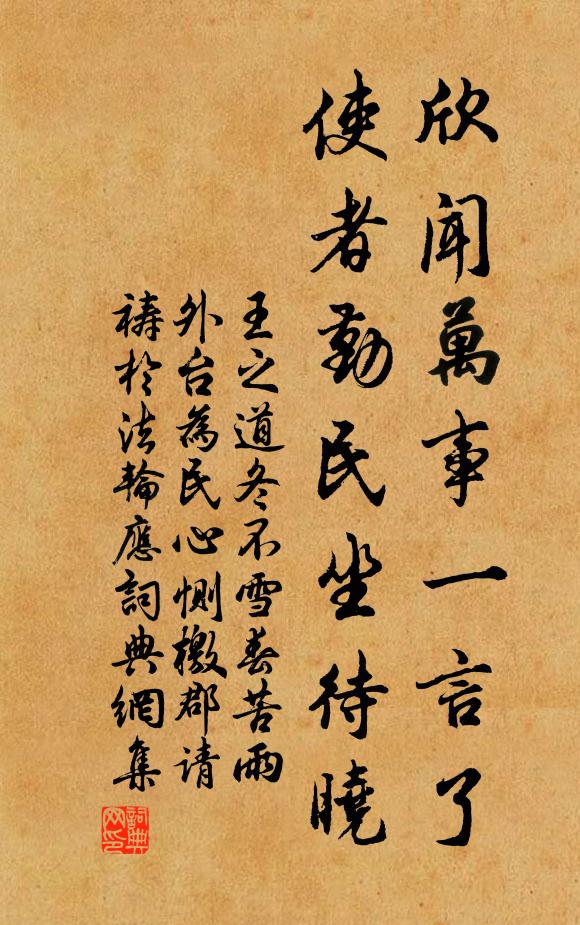 欣聞萬事一言了
使者勤民坐待曉
王之道冬不雪春苦雨
外台為民心惻檄郡請
禱於法輪應詞典網集
詞典网印